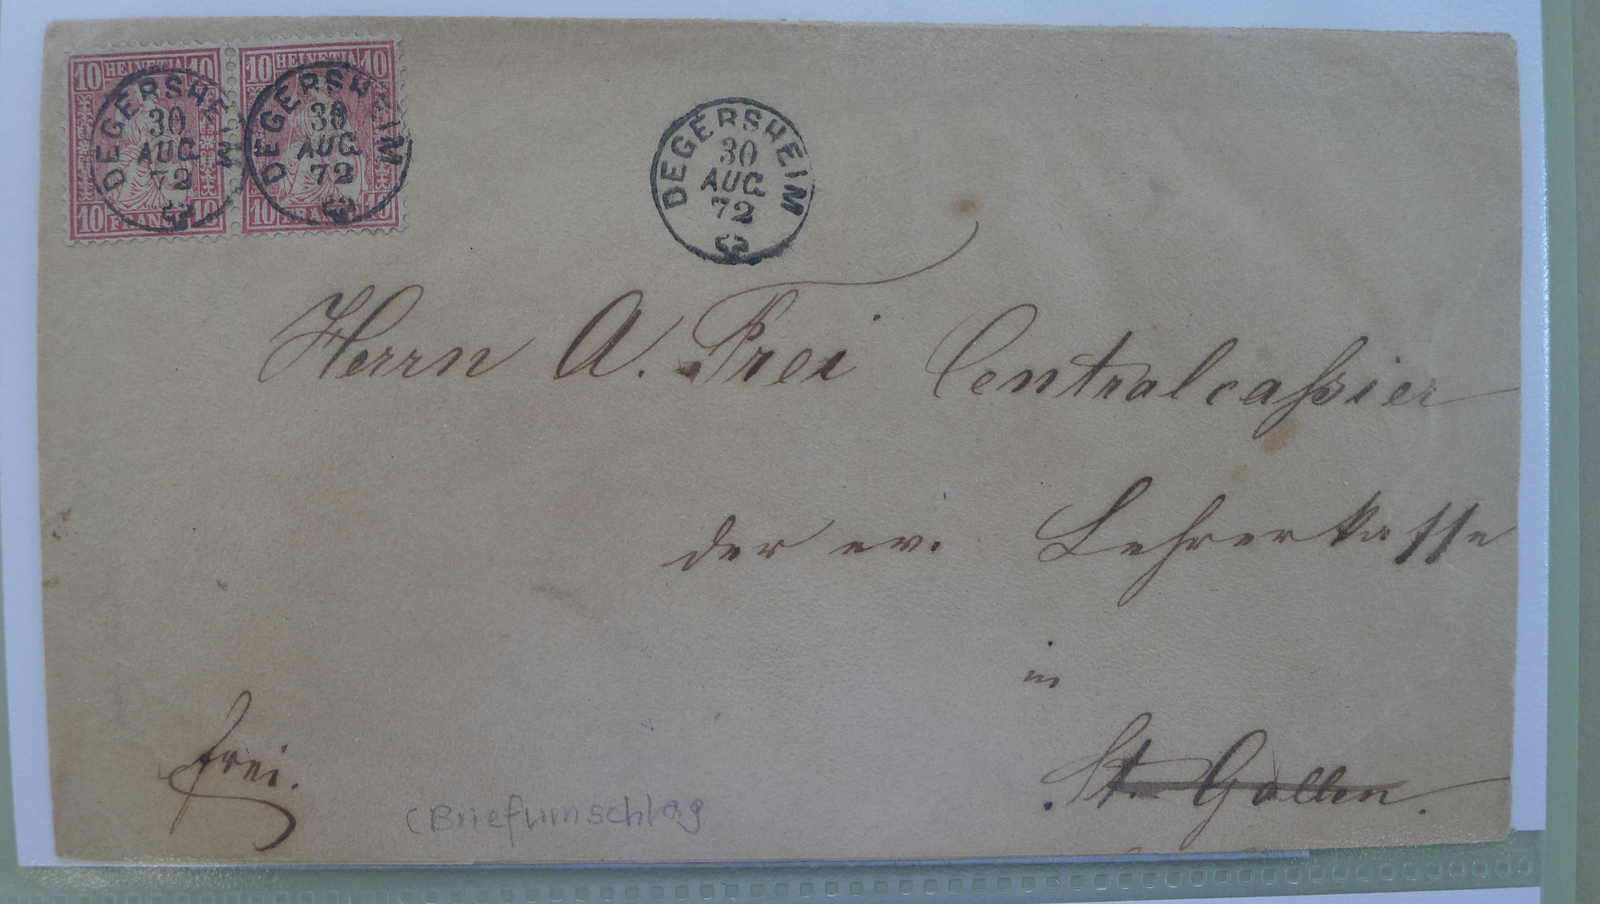 10 HELVETIA 10
10 FRANCO 10
10 HELVETIA 10
10 FRANCO 10
DEGERSHEIM
30
AUG
72
DEGERSHEIM
30
AUG
72
DEGERSHEIM
30
AUG
72
Herrn A. Frei Centralcassier
der ev. Lehrerkasse
in
St. Gallen.
frei.
(Briefumschlag